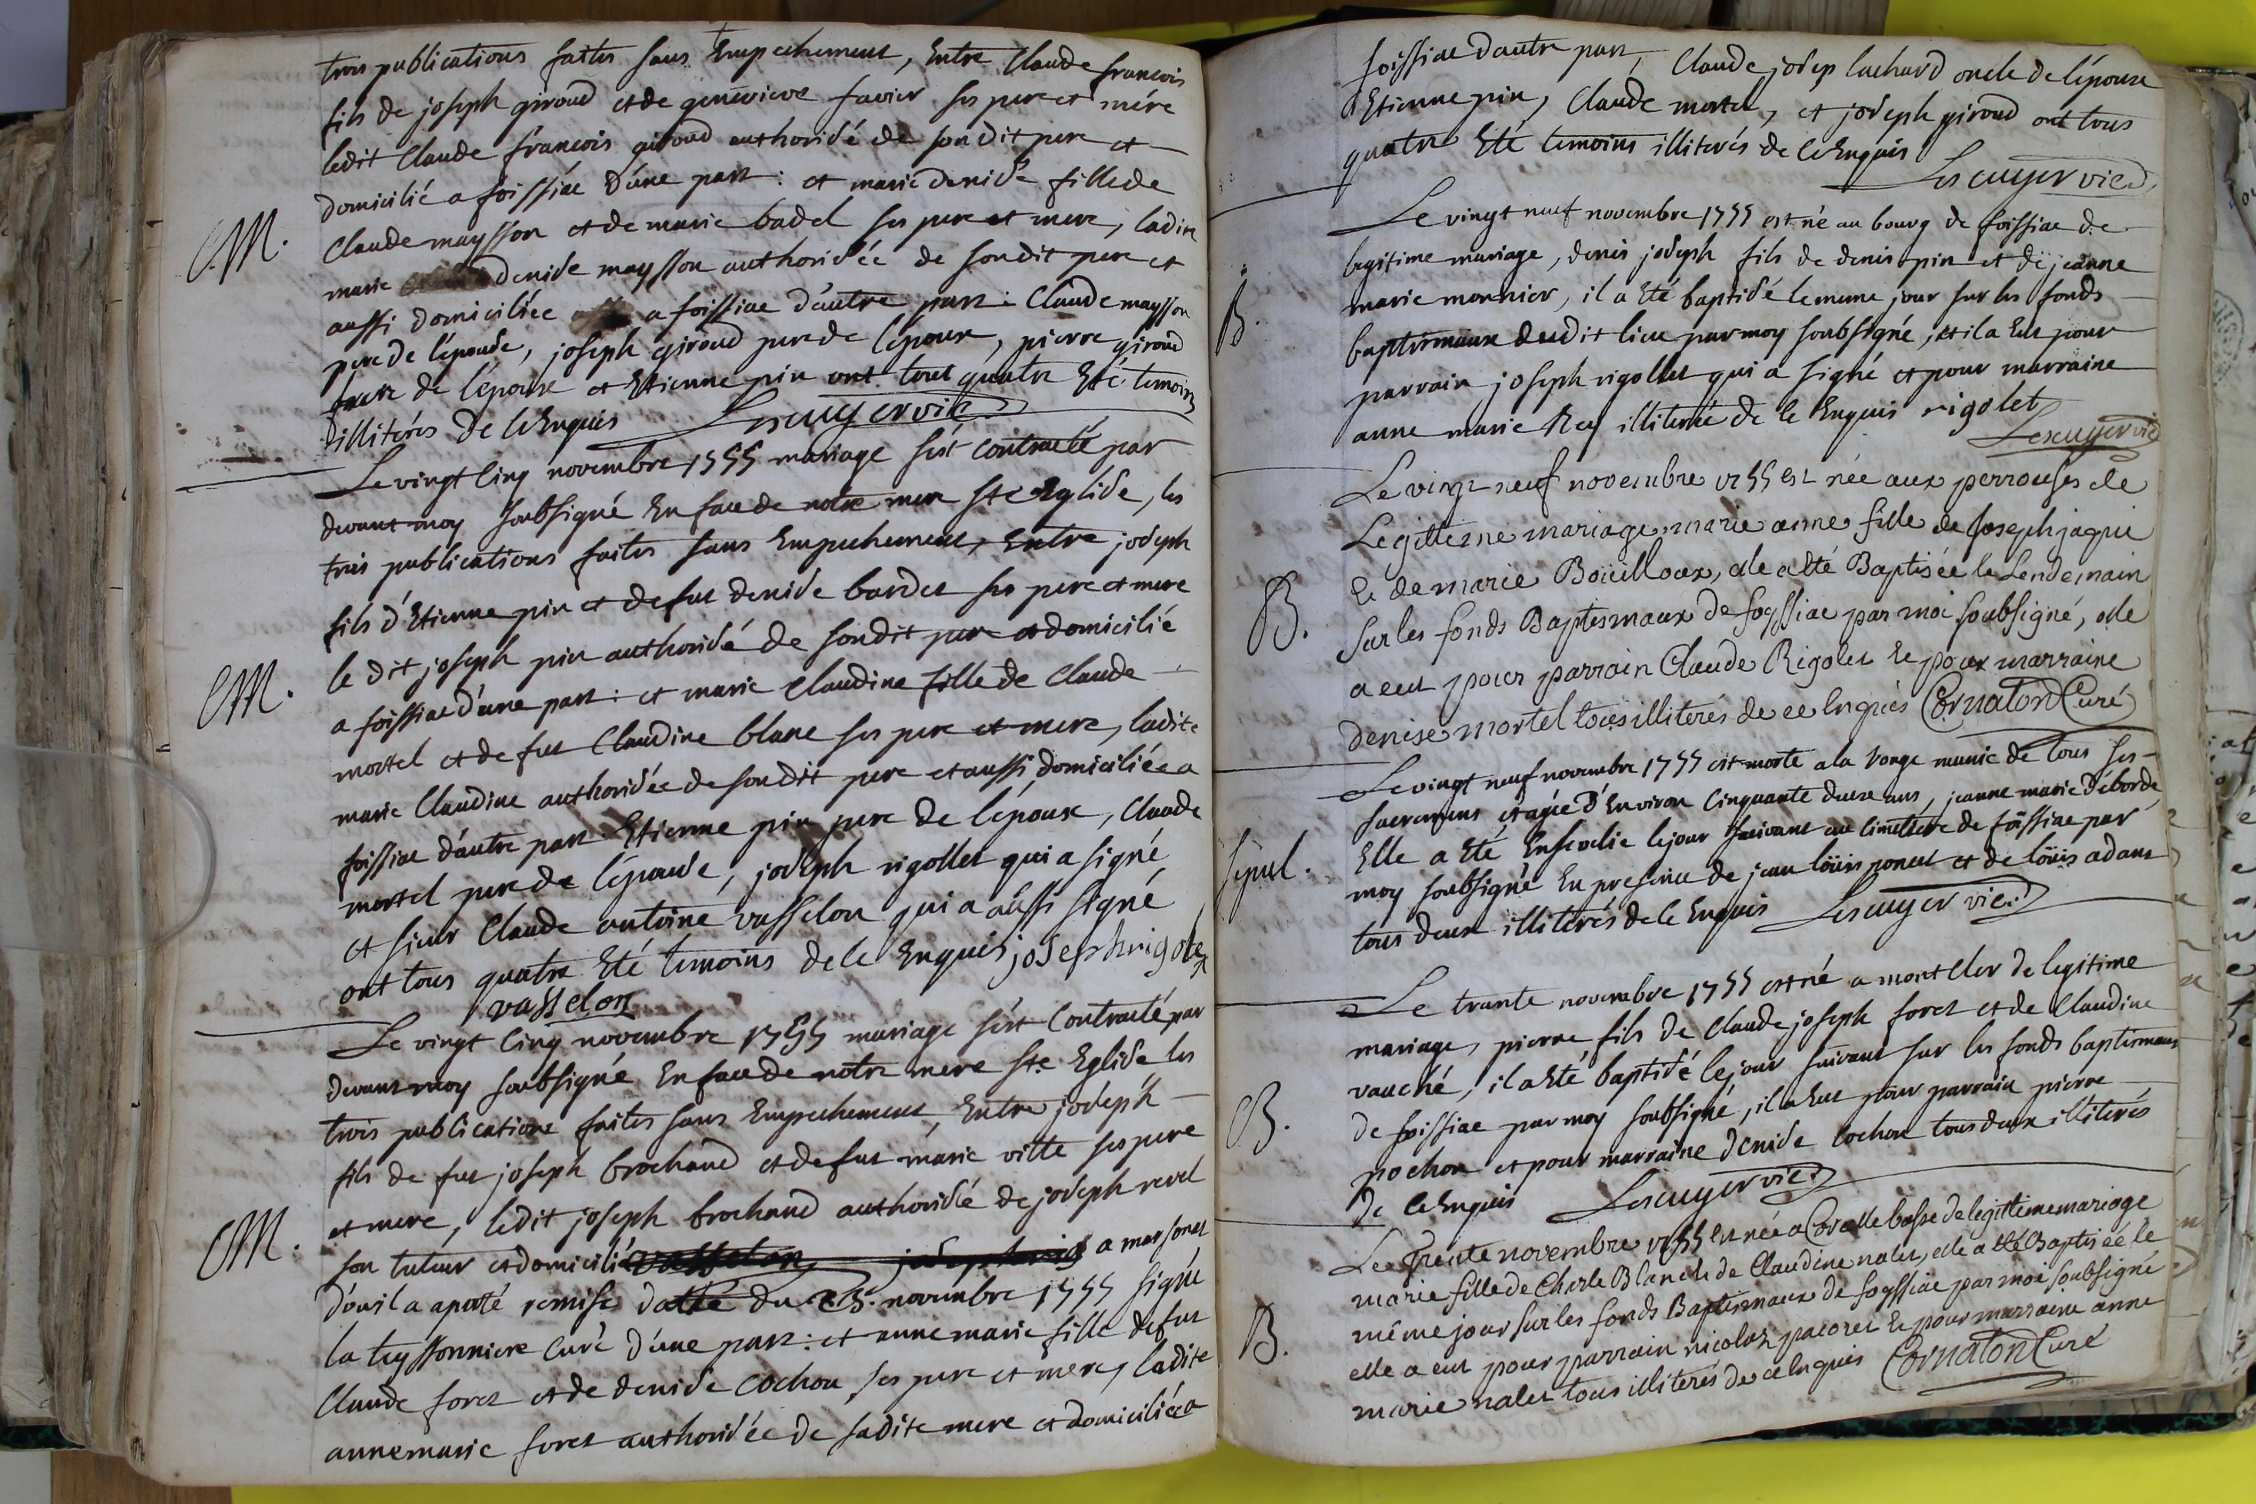 trois publications faites sans Empechement, Entre Claude francois
fils de joseph giroud et de genevieve favier ses pere et mére
ledit Claude francois giroud authorisé de sondit pere et
domicilié a foissiac d'une part : et marie denise fille de
M.
Claude maysson et de marie badel ses pere et mere, ladite
marie denise maysson authorisée de sondit pere et
aussi domiciliée a foissiac d'autre part : Claude maysson
pere de l'épouse, joseph giroud pere de l'epoux, pierre giroud
frere de l'epoux et Etienne pin ont tout quatre Eté temoins
illiterés de ce Enquis Lescuyer vic.
Le vingt cinq novembre 1755 mariage s'est contracté par
devant moy soubsigné En face de notre mere ste Eglise, les
trois publications faites sans Empechement, Entre joseph
fils d'Etienne pin et de fut denise bardet ses pere et mere
le dit joseph pin authorisé de sondit pere et domicilié
M.
a foissiac d'une part : et marie Claudine fille de Claude
mortel et de fut Claudine blanc ses pere et mere, ladite
marie Claudine authorisée de sondit pere et aussi domiciliée a
foissiac d'autre part Etienne pin pere de l'époux, Claude
mortel pere de l'épouse, joseph rigollet qui a signé
et sieur Claude antoine vasselon qui a aussi signé
ont tous quatre Eté temoins de ce Enquis joseph rigolet
vasselon
Le vingt cinq novembre 1755 mariage s'est Contracté par
devant moy soubsigné En face de notre mere ste Eglise les
trois publications faites sans Empechement, Entre joseph
fils de fut joseph brochand et de fut marie vitte ses pere
et mere, ledit joseph brochand authorisé de joseph revel
M.
son tuteur et domicilié vasselon joseph rig a marsonet
d'ou il a aporté remise datté du 23. novembre 1755 signée
la teyssonniere curé d'une part : et anne marie fille de fut
Claude foret et de denise Cochon ses pere et mere, ladite
anne marie foret authorisée de sadite mere et domiciliée a
foissiac d'autre part, Claude josep luchard oncle de l'épouse
Etienne pin, Claude mortel, et joseph giroud ont tous
quatre Eté temoins illiterés de ce Enquis
Lescuyer vic.
Le vingt neuf novembre 1755 est né au bourg de foissiac de
legitime mariage, denis joseph fils de denis pin et de jeanne
marie monnier, il a Eté baptisé le meme jour sur les fonds
B.
baptismaux dudit lieu par moy soubsigné, et il a Eut pour
parrain joseph rigollet qui a signé et pour marraine
anne marie Rey illiterée de ce Enquis rigolet
Lescuyer vic
Le vingt neuf novembre 1755 est née aux perrouses de
Legitteme mariage marie anne fille de Joseph jaquie
B.
& de marie Boüilloux, ele a été Baptisée le Lendemain
sur les fonds Baptesmaux de foyssiac par moi soubsigné, ele
a eut pour parrain Claude Rigolet & pour marraine
denise mortel tous illiterés de ce Enquis Cornaton Curé
Le vingt neuf novembre 1755 est morte a la vonge munie de tous ses
sacremens et agée d'Environ Cinquante deux ans, jeanne marie Déborde
sepul.
Elle a Eté Ensevelie le jour suivant au cimetiere de foissiac par
moy soubsigné En presence de jean loüis poncet et de loüis adam
tous deux illiterés de ce Enquis Lescuyer vic.
Le trante novembre 1755 est né a montcler de legitime
mariage, pierre fils de Claude joseph foret et de Claudine
vauché, il a Eté baptisé le jour suivant sur les fonds baptismaux
B.
de foissiac par moy soubsigné, il a Eut pour parrain pierre
pochon et pour marraine denise Cochon tous deux illiterés
de ce Enquis Lescuyer vic.
Le Trente novembre 1755 est née a Corcelle basse de legitteme mariage
marie fille de Charle Blanc & de Claudine nalet, elle a été Baptisée le
même jour sur les fonds Baptismaux de foyssiac par moi soubsigné
B.
elle a eut pour parrain nicolas pacoret & pour marraine anne
marie nalet tous illiterés de ce Enquis Cornaton Curé